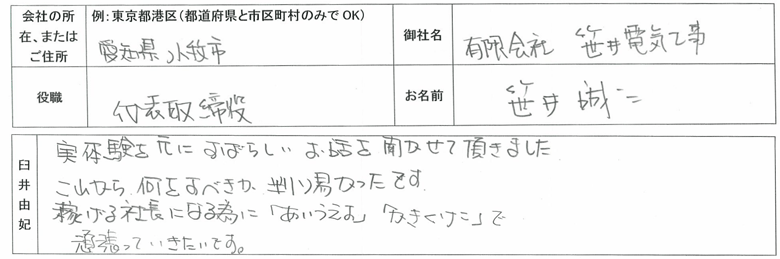 会社の所在、またはご住所
例：東京都港区（都道府県と市区町村のみでOK）
愛知県小牧市
御社名
有限会社 笹井電気工事
役職
代表取締役
お名前
笹井 誠二
臼井由妃
実体験を元にすばらしいお話を聞かせて頂きました
これから何をすべきか、判り易かったです
稼げる社長になる為に「あいうえお」「かきくけこ」で
頑張っていきたいです。